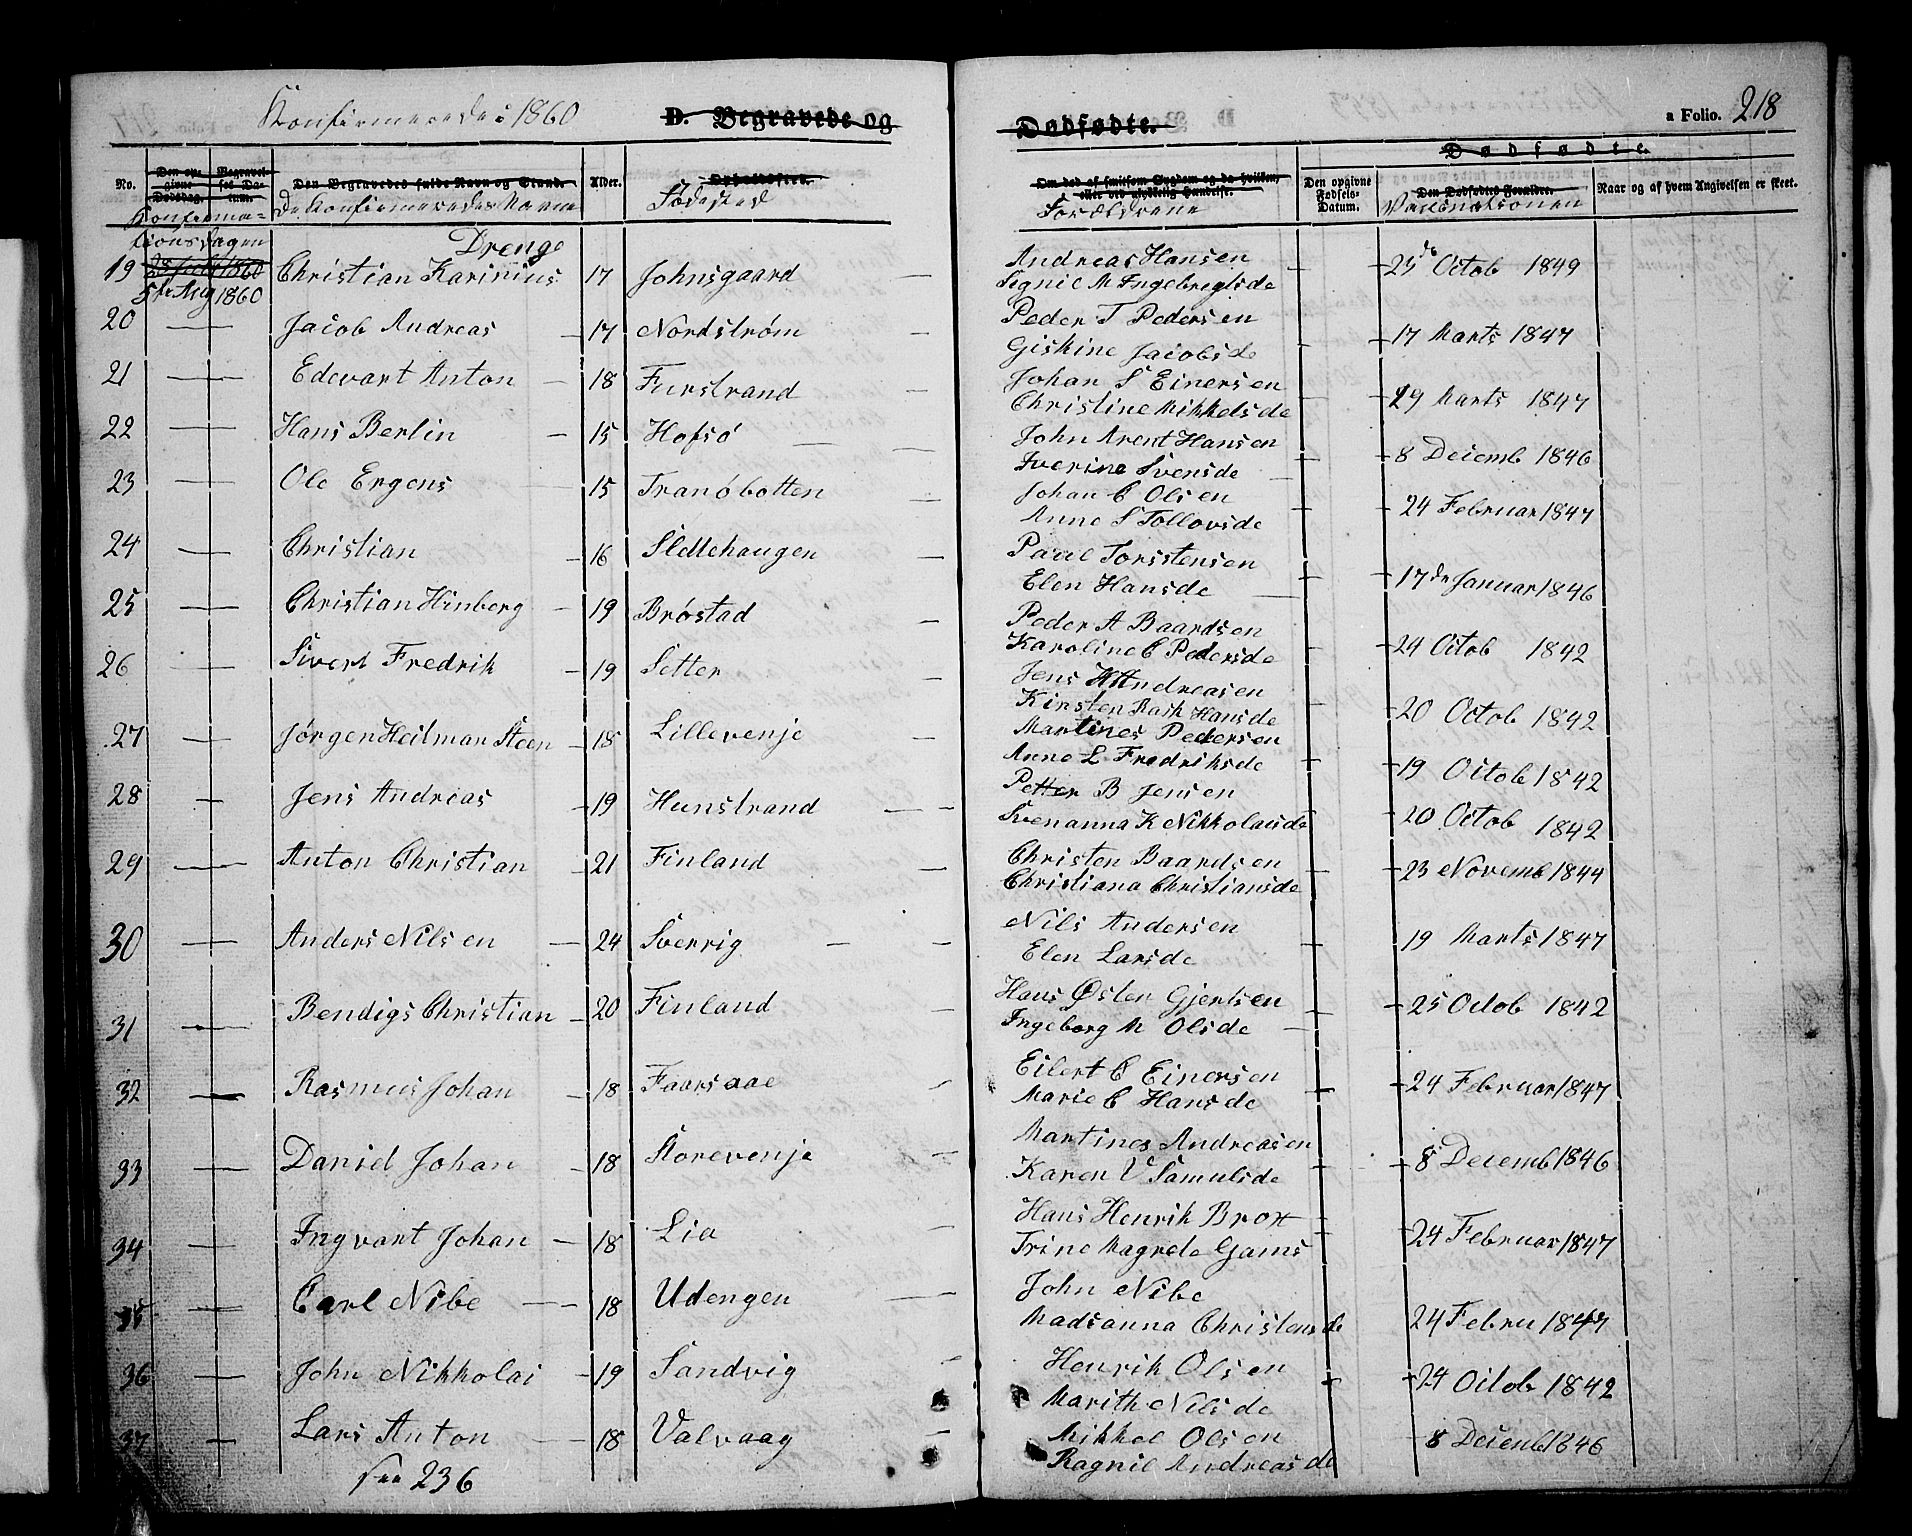 Konfirmerede i 1860 D. Begravede og Dødfødte. a Folio. 218
No. Den opgivne Dødsdag. Begravelses Datum. Den Begravedes fulde Navn og Stand. Alder. Om død af smitsom Sygdom og da hvilken, eller ved ulykkelig Hændelse. Dødfødte. Den opgivne Fødsels-Datum. Den Dødfødtes Forældre. Naar og af hvem Angivelsen er skeet.
Konfirma-tionsdagen De Konfirmeredes Navne Fødested Forældrene Vaccinationen
Drenge
19 5te Aug 1860 Christian Karinius 17 Johnsgaard — Andreas Hansen 23de Octob 1849
Signil M Ingebregtsde
20 — — Jacob Andreas — 17 Nordstrøm — Peder T Pedersen 17 Marts 1847
Giskine Jacobsde
21 — — Edevart Anton — 18 Furstrand — Johan S Einersen 29 Marts 1847
Christine Mikkelsde
22 — — Hans Berlin — 15 Hofsø — John Arent Hansen 8 Decemb 1846
Iverine Svensde
23 — — Ole Ergens 15 Tranøbotten — Johan C Olsen 24 Februar 1847
Anne S Tollovsde
24 — — Christian — 16 Sledtehaugen — Paul Torsstensen 17de Januar 1846
Elen Hansde
25 — — Christian Hinberg — 19 Brøstad — Peder A Baardsen 24 Octob 1842
Karoline C Pedersde
26 — — Sivert Fredrik — 19 Setter — Jens H Andreasen 20 Octob 1842
Kirsten Rask Hansde
27 — — Jørgen Heilman Steen — 18 Lillevenje — Martines Pedersen 19 Octob 1842
Anne L Fredriksde
28 — Jens Andreas — 19 Hunstrand — — Petter B Jensen 20 Octob 1842
Svenanna K Nikkolaisde
29 — — Anton Christian — 21 Finland — Christen Baardsen 23 Novemb 1844
Christiana Christiansde
30 — — Anders Nilsen — 24 Sverrig — — Nils Andersen 19 Marts 1847
Elen Larsde
31 — — Bendigs Christian — 20 Finland — Hans Østen Gjertsen 25 Octob 1842
Ingeborg M Olsde
32 — — Rasmus Johan — 18 Faarsaae — Eilert C Einersen 24 Februar 1847
Marie C Hansde
33 — — Daniel Johan — 18 Storevenje — Martines Andreasen 8 Decemb 1846
Karen V Samulsde
34 — — Ingvart Johan — 18 Lia — Hans Henrik Brox 24 Februar 1847
Trine Magrede Gams
35 — — Carl Nibe — 18 Udengen — John Nibe 24 Febru 1847
Madsanna Christensde
36 — — John Nikkolai — 19 Sandvig — Henrik Olsen 24 Octob 1842
Marith Nilsde
37 — — Lars Anton — 18 Valvaag — Mikkel Olsen 8 Desemb 1846
Ragnil Andreasde
236